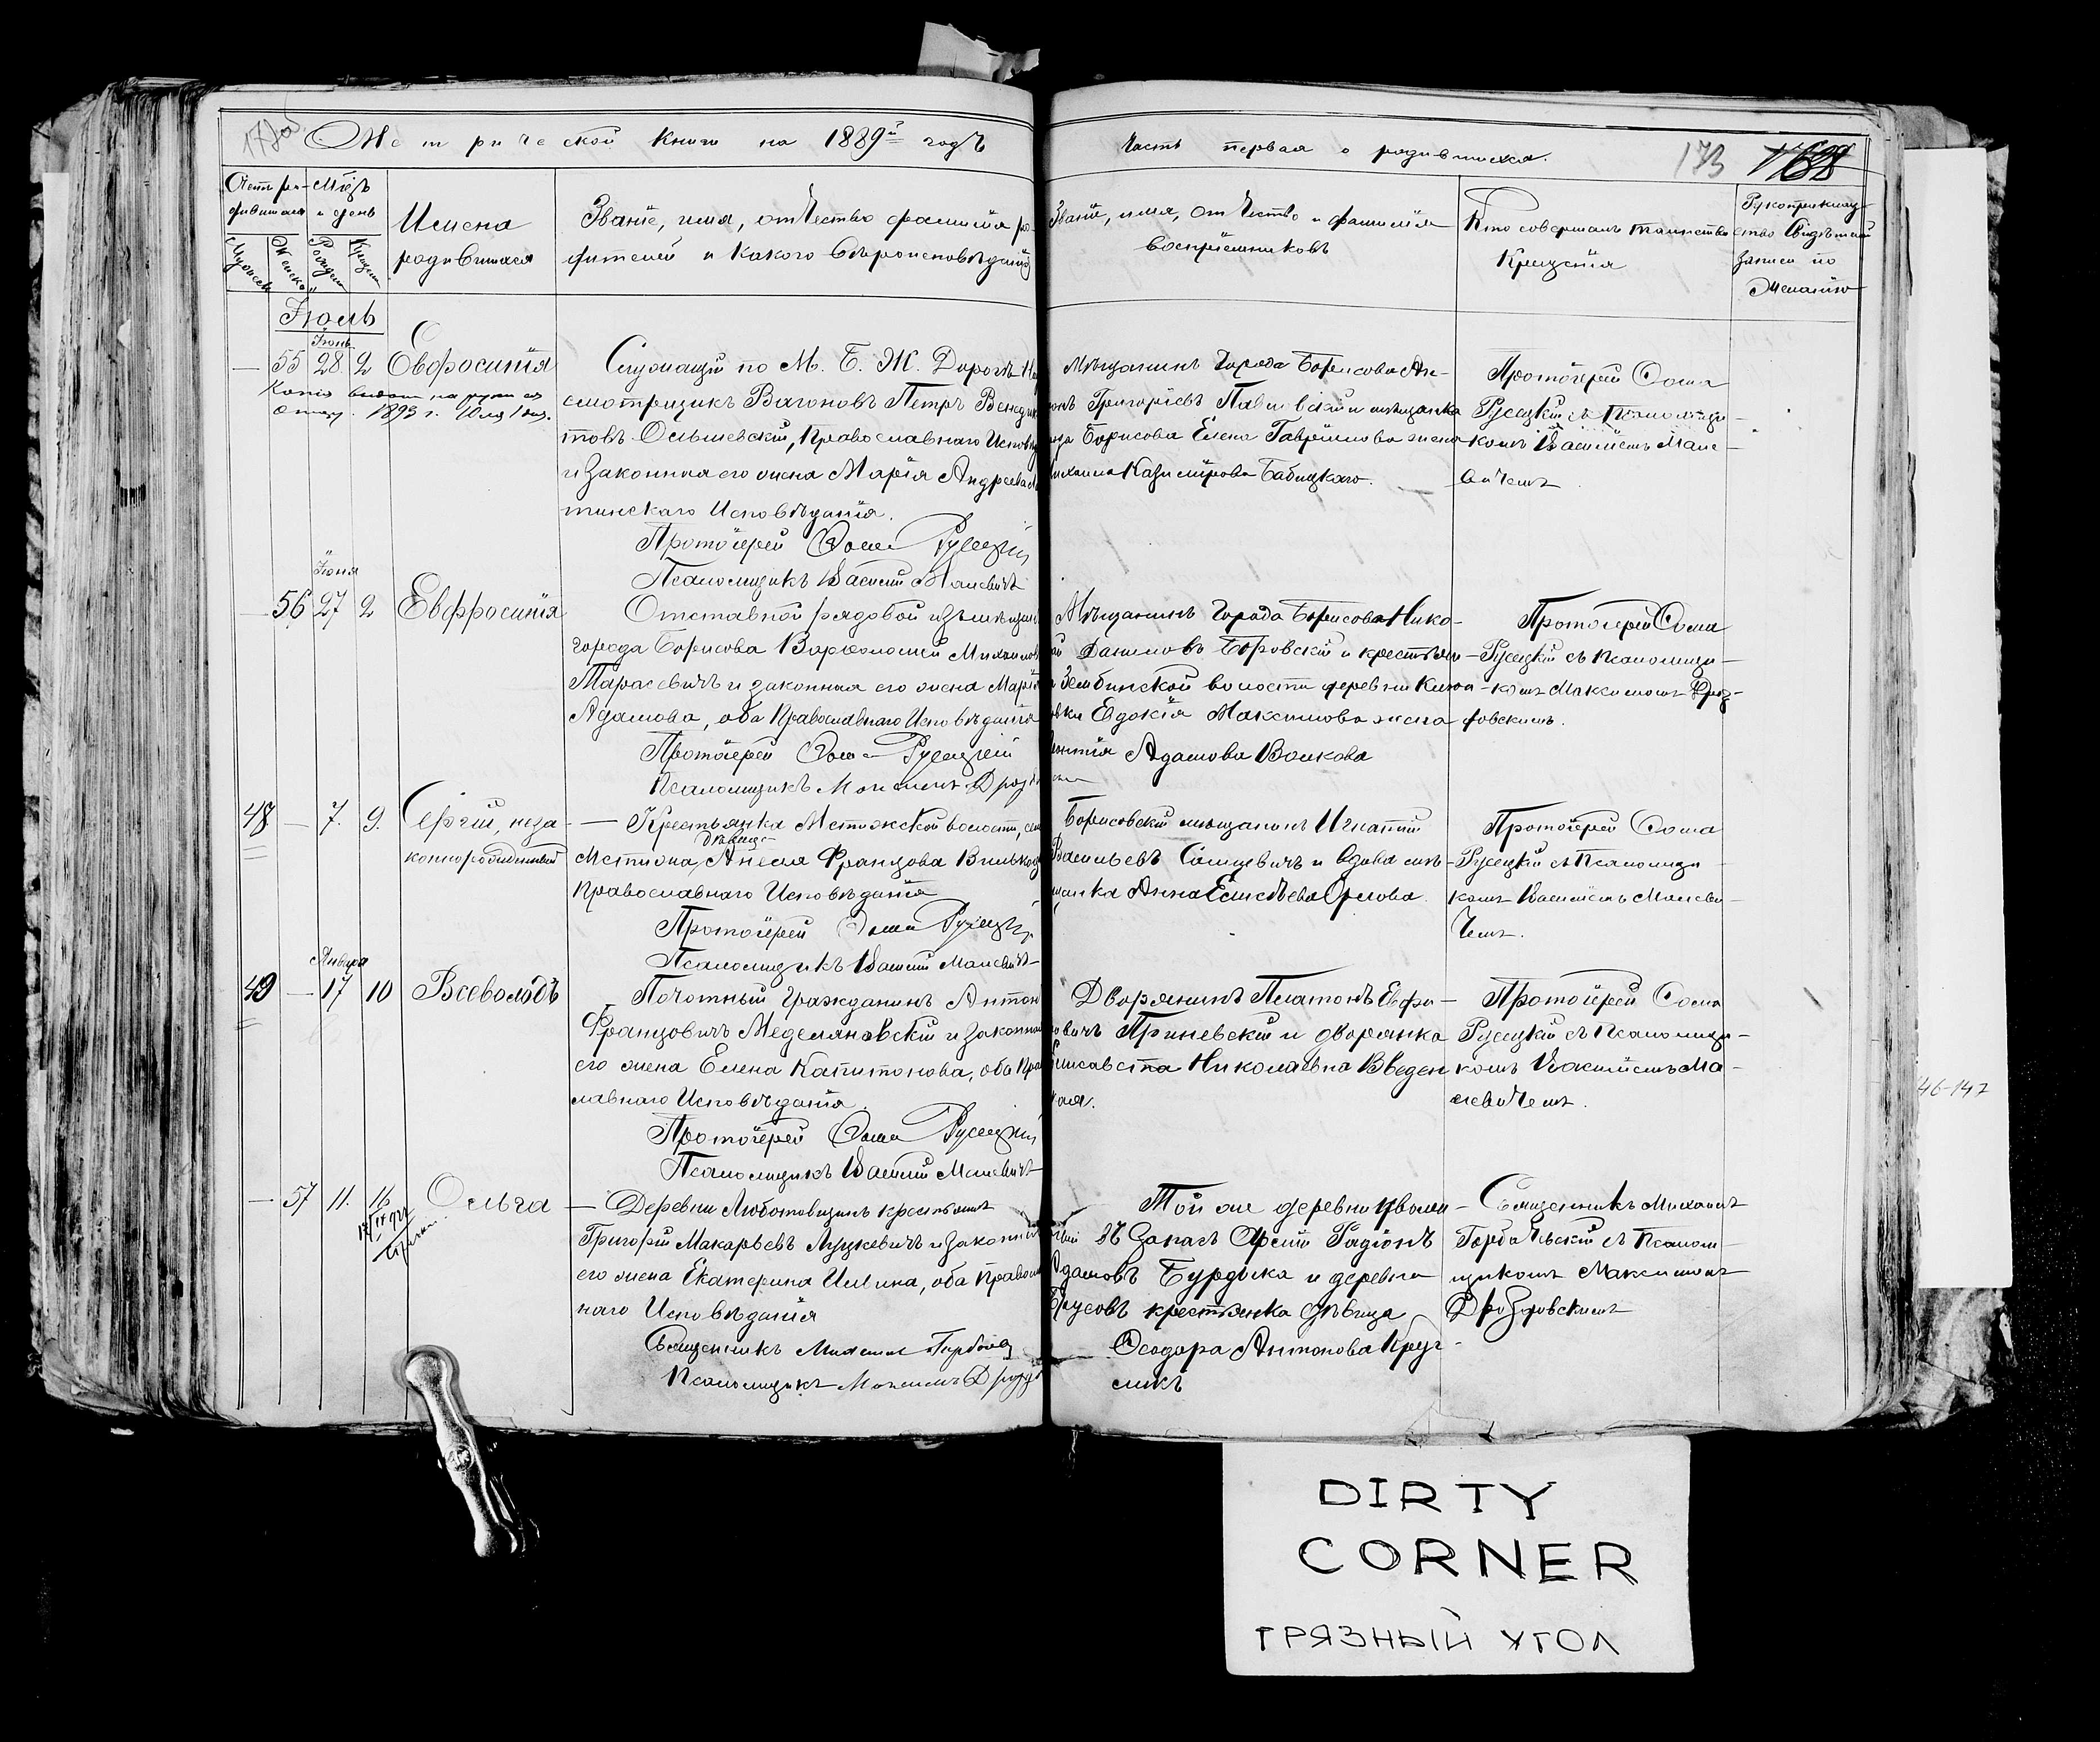 Метрической Книги на 1889й годъ
Часть первая о родившихся.
173
Мѣсц
и день
Имена
родившихся
Званіе, имя, отчество фамилія ро-
дителей и какого вѣроисповѣданія
Званіе, имя, отчество и фамилія
воспріемниковъ
Кто совершалъ таинство
Крещенія
Рукоприклад-
ство свидѣтелей
записи по
желанію
Іюль
Іюнь
— 55 28 2 Евфросинія
Служащій по М. Б. Ж. Дорогѣ
смотрщикъ Вагоновъ Петръ Венедик
товъ Ольшевскій, Православнаго Исповѣд
и законная его жена Марія Андреева
тинскаго Исповѣданія.
Протоіерей Ѳома Русецкій
Псаломщикъ Василій Малевичъ
Мѣщанинъ Города Борисова Ан-
онъ Григорьевъ и мѣщанка
Борисова Елена Гаврилова жена
Михаила Казимірова Бабицкаго.
Протоіерей Ѳома
Русецкій съ Псаломщи-
комъ Василіемъ Мале-
вичемъ.
Копія выдана на руки
отцу. 1893 г.
Іюня
— 56 27 2 Евфросинія
Отставной рядовой изъ мѣщанъ
города Борисова Варѳоломей Михаиловъ
Тарасевичъ и законная его жена Марія
Адамова, оба Православнаго Исповѣданія
Протоіерей Ѳома Русецкій
Псаломщикъ Дрозд
Мѣщанинъ Города Борисова Нико-
ай Даниловъ Боровскій и крестьян-
Зембинской волости деревни
Евдокія Максимова жена
Адамова Волкова
Протоіерей Ѳома
Русецкій съ Псаломщи-
комъ Максимомъ Дроз-
довскимъ.
48 — 7. 9. Сергій, неза-
коннорожденный
— Крестьянка Мстижской волости, сел
дѣвица
Мстижа, Анеля Францова
Православнаго Исповѣданія
Протоіерей Ѳома Русецкій
Псаломщикъ Василій Малевичъ
Борисовскій мѣщанинъ Игнатій
Васильевъ и мѣ-
щанка Анна Орлова
Протоіерей Ѳома
Русецкій съ Псаломщи-
комъ Василіемъ Малеви-
чемъ.
Января
49 — 17 10 Всеволодъ
Почотный Гражданинъ Антон
Францовичъ Меделяновскій и законная
его жена Елена Капитонова, оба Пра
лавнаго Исповѣданія
Протоіерей Ѳома Русецкій
Псаломщикъ Василій Малевичъ
Дворянинъ Платонъ Евфи-
овичъ Гриневскій и дворянка
Елисавета Николаевна Введен
кая.
Протоіерей Ѳома
Русецкій съ Псаломщи-
комъ Василіемъ Ма-
левичемъ.
— 57 11. 16. Ольга
— Деревни крестьянинъ
Григорій Макарьевъ Луцкевичъ и законная
его жена Екатерина Ильина, оба Правос
наго Исповѣданія
Священникъ Михаилъ
Псаломщикъ Максимъ
Той же деревни уволен
въ Запасъ Арміи Радіонъ
Адамовъ Бурдыка и деревни
крестьянка дѣвица
Ѳеодора Антонова Круг-
ликъ
Священникъ Михаилъ
съ Псалом-
щикомъ Максимомъ
Дроздовскимъ
46-147
DIRTY
CORNER
ГРЯЗНЫЙ УГОЛ